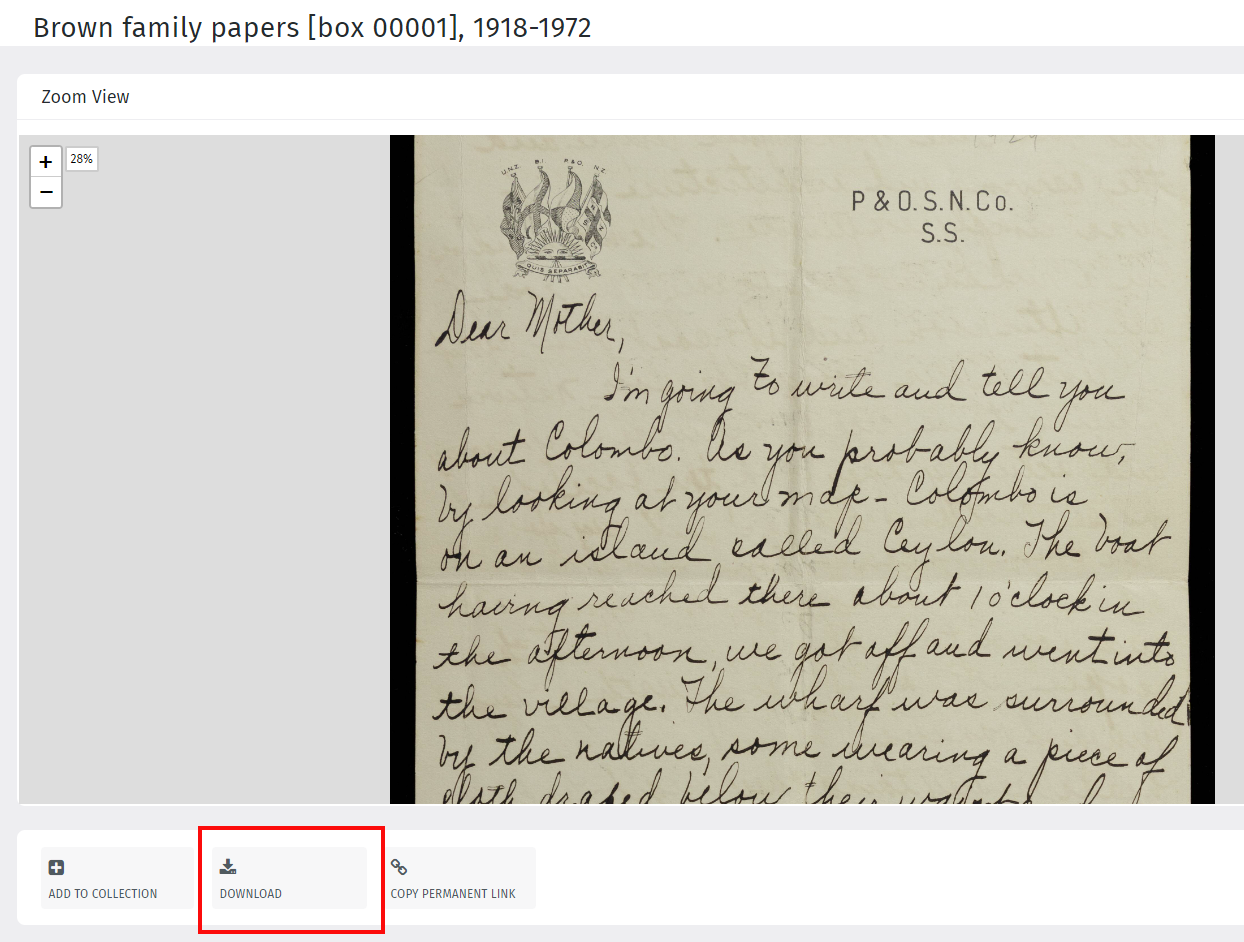 Brown family papers [box 00001], 1918-1972
Zoom View
+
28%
−
1929
U.N.Z. B.I. P.&O. N.Z.
QUIS SEPARABIT
P & O. S. N. Co.
S.S.
Dear Mother,
I'm going to write and tell you
about Colombo. As you probably know,
by looking at your map - Colombo is
on an island called Ceylon. The boat
having reached there about 1 o'clock in
the afternoon, we got off and went into
the village. The wharf was surrounded
by the natives, some wearing a piece of
cloth draped below their
ADD TO COLLECTION
DOWNLOAD
COPY PERMANENT LINK